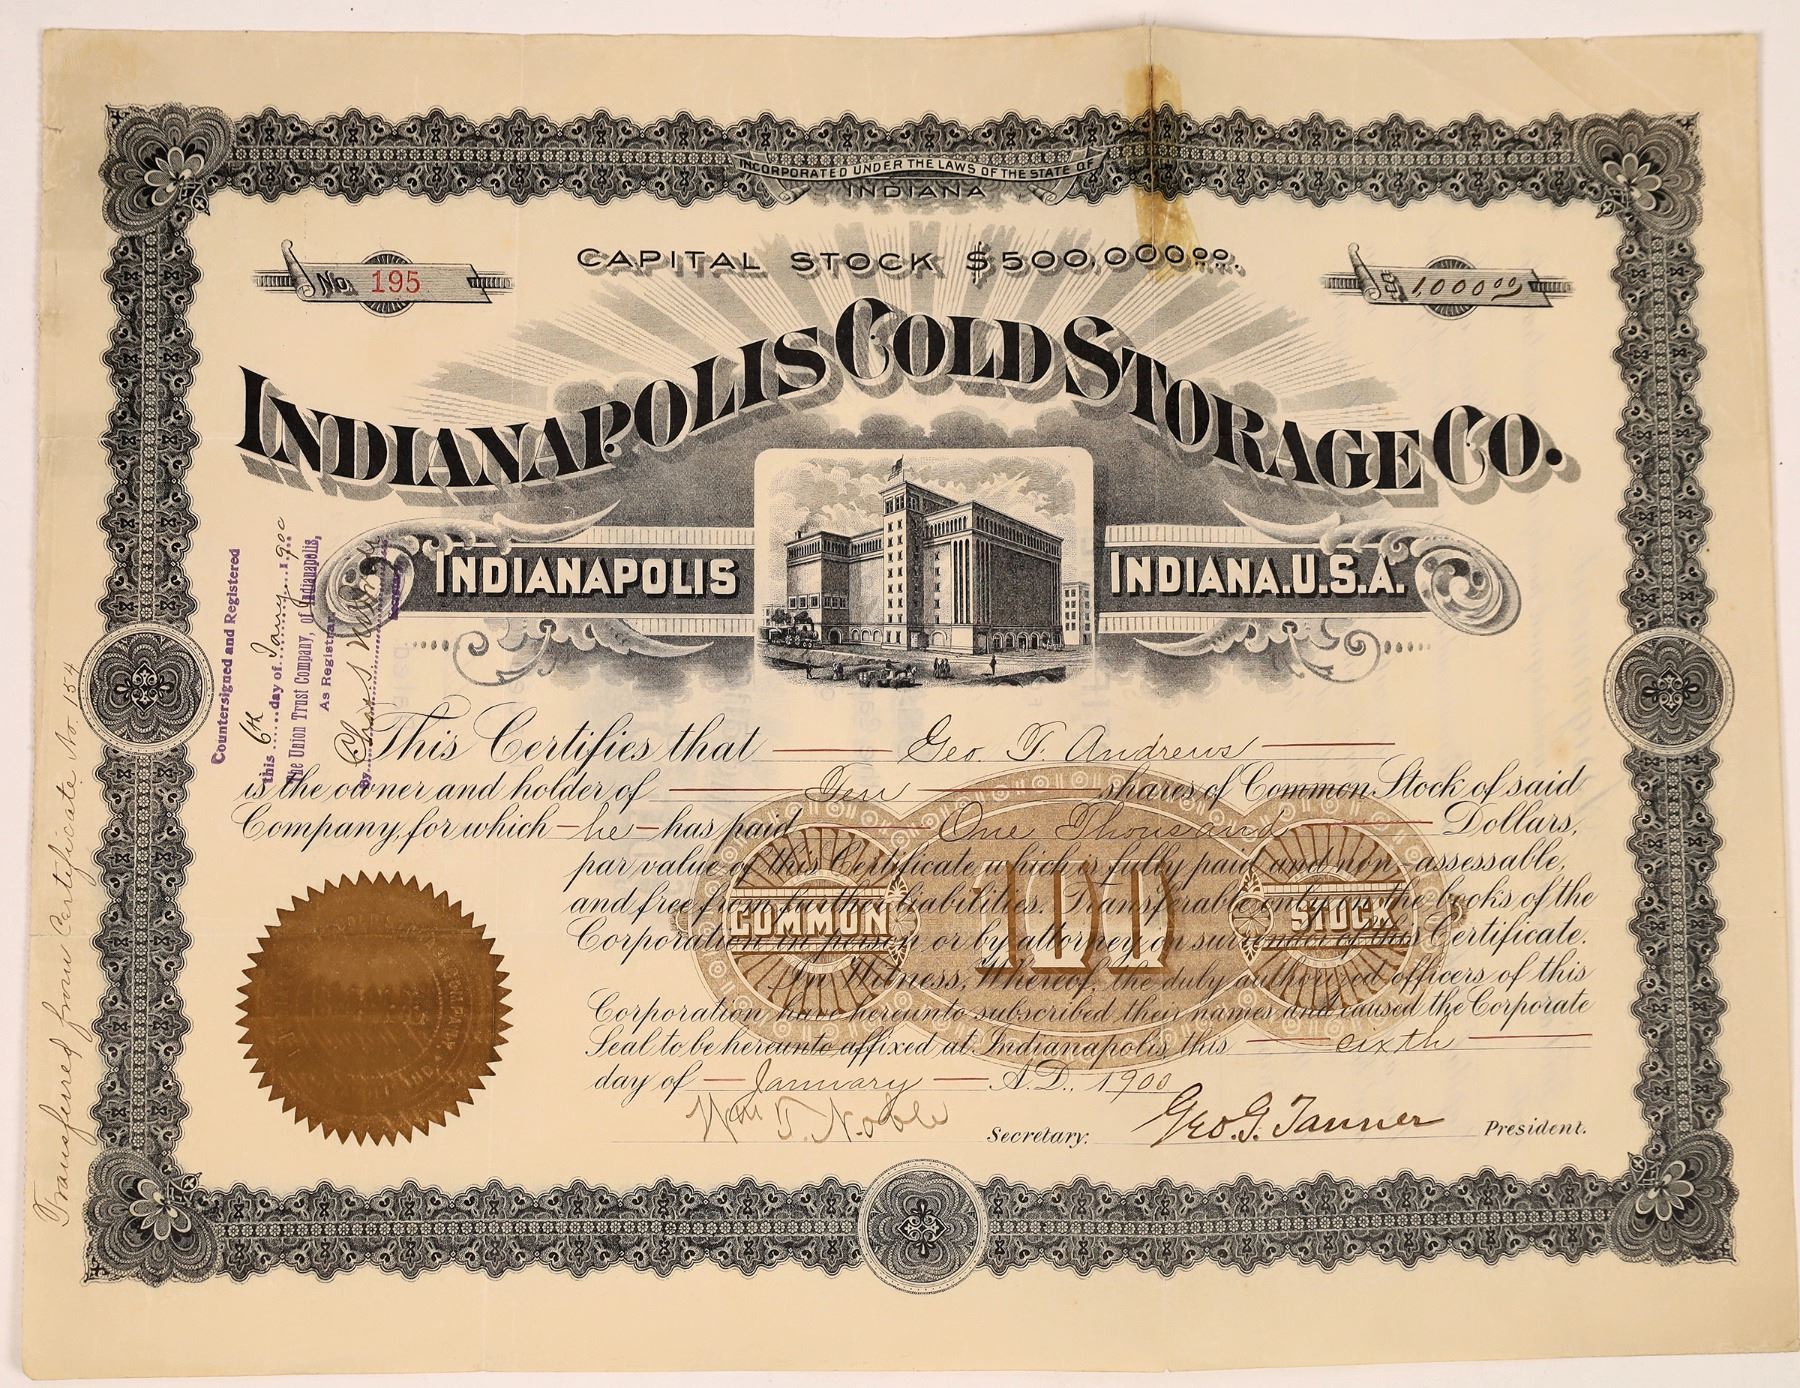 INCORPORATED UNDER THE LAWS OF THE STATE OF
INDIANA
CAPITAL STOCK $500,000.00.
No. 195
$ 1,000.00
INDIANAPOLIS COLD STORAGE CO.
INDIANAPOLIS
INDIANA.U.S.A.
Countersigned and Registered
this 6th day of Jany 1900
The Union Trust Company, of Indianapolis,
As Registrar
by
This Certifies that Geo. T. Andrews
is the owner and holder of Ten shares of Common Stock of said
Company, for which he has paid One Thousand Dollars,
par value of this Certificate which is fully paid and non-assessable,
and free from further liabilities. Transferable only on the books of the
Corporation in person or by attorney on surrender of this Certificate.
In Witness Whereof, the duly authorized officers of this
Corporation have hereunto subscribed their names and caused the Corporate
Seal to be hereunto affixed at Indianapolis, this sixth
day of January A.D., 1900
COMMON 100 STOCK
Wm T. Noble Secretary.
Geo. G. Tanner President.
Transferred from Certificate No. 154